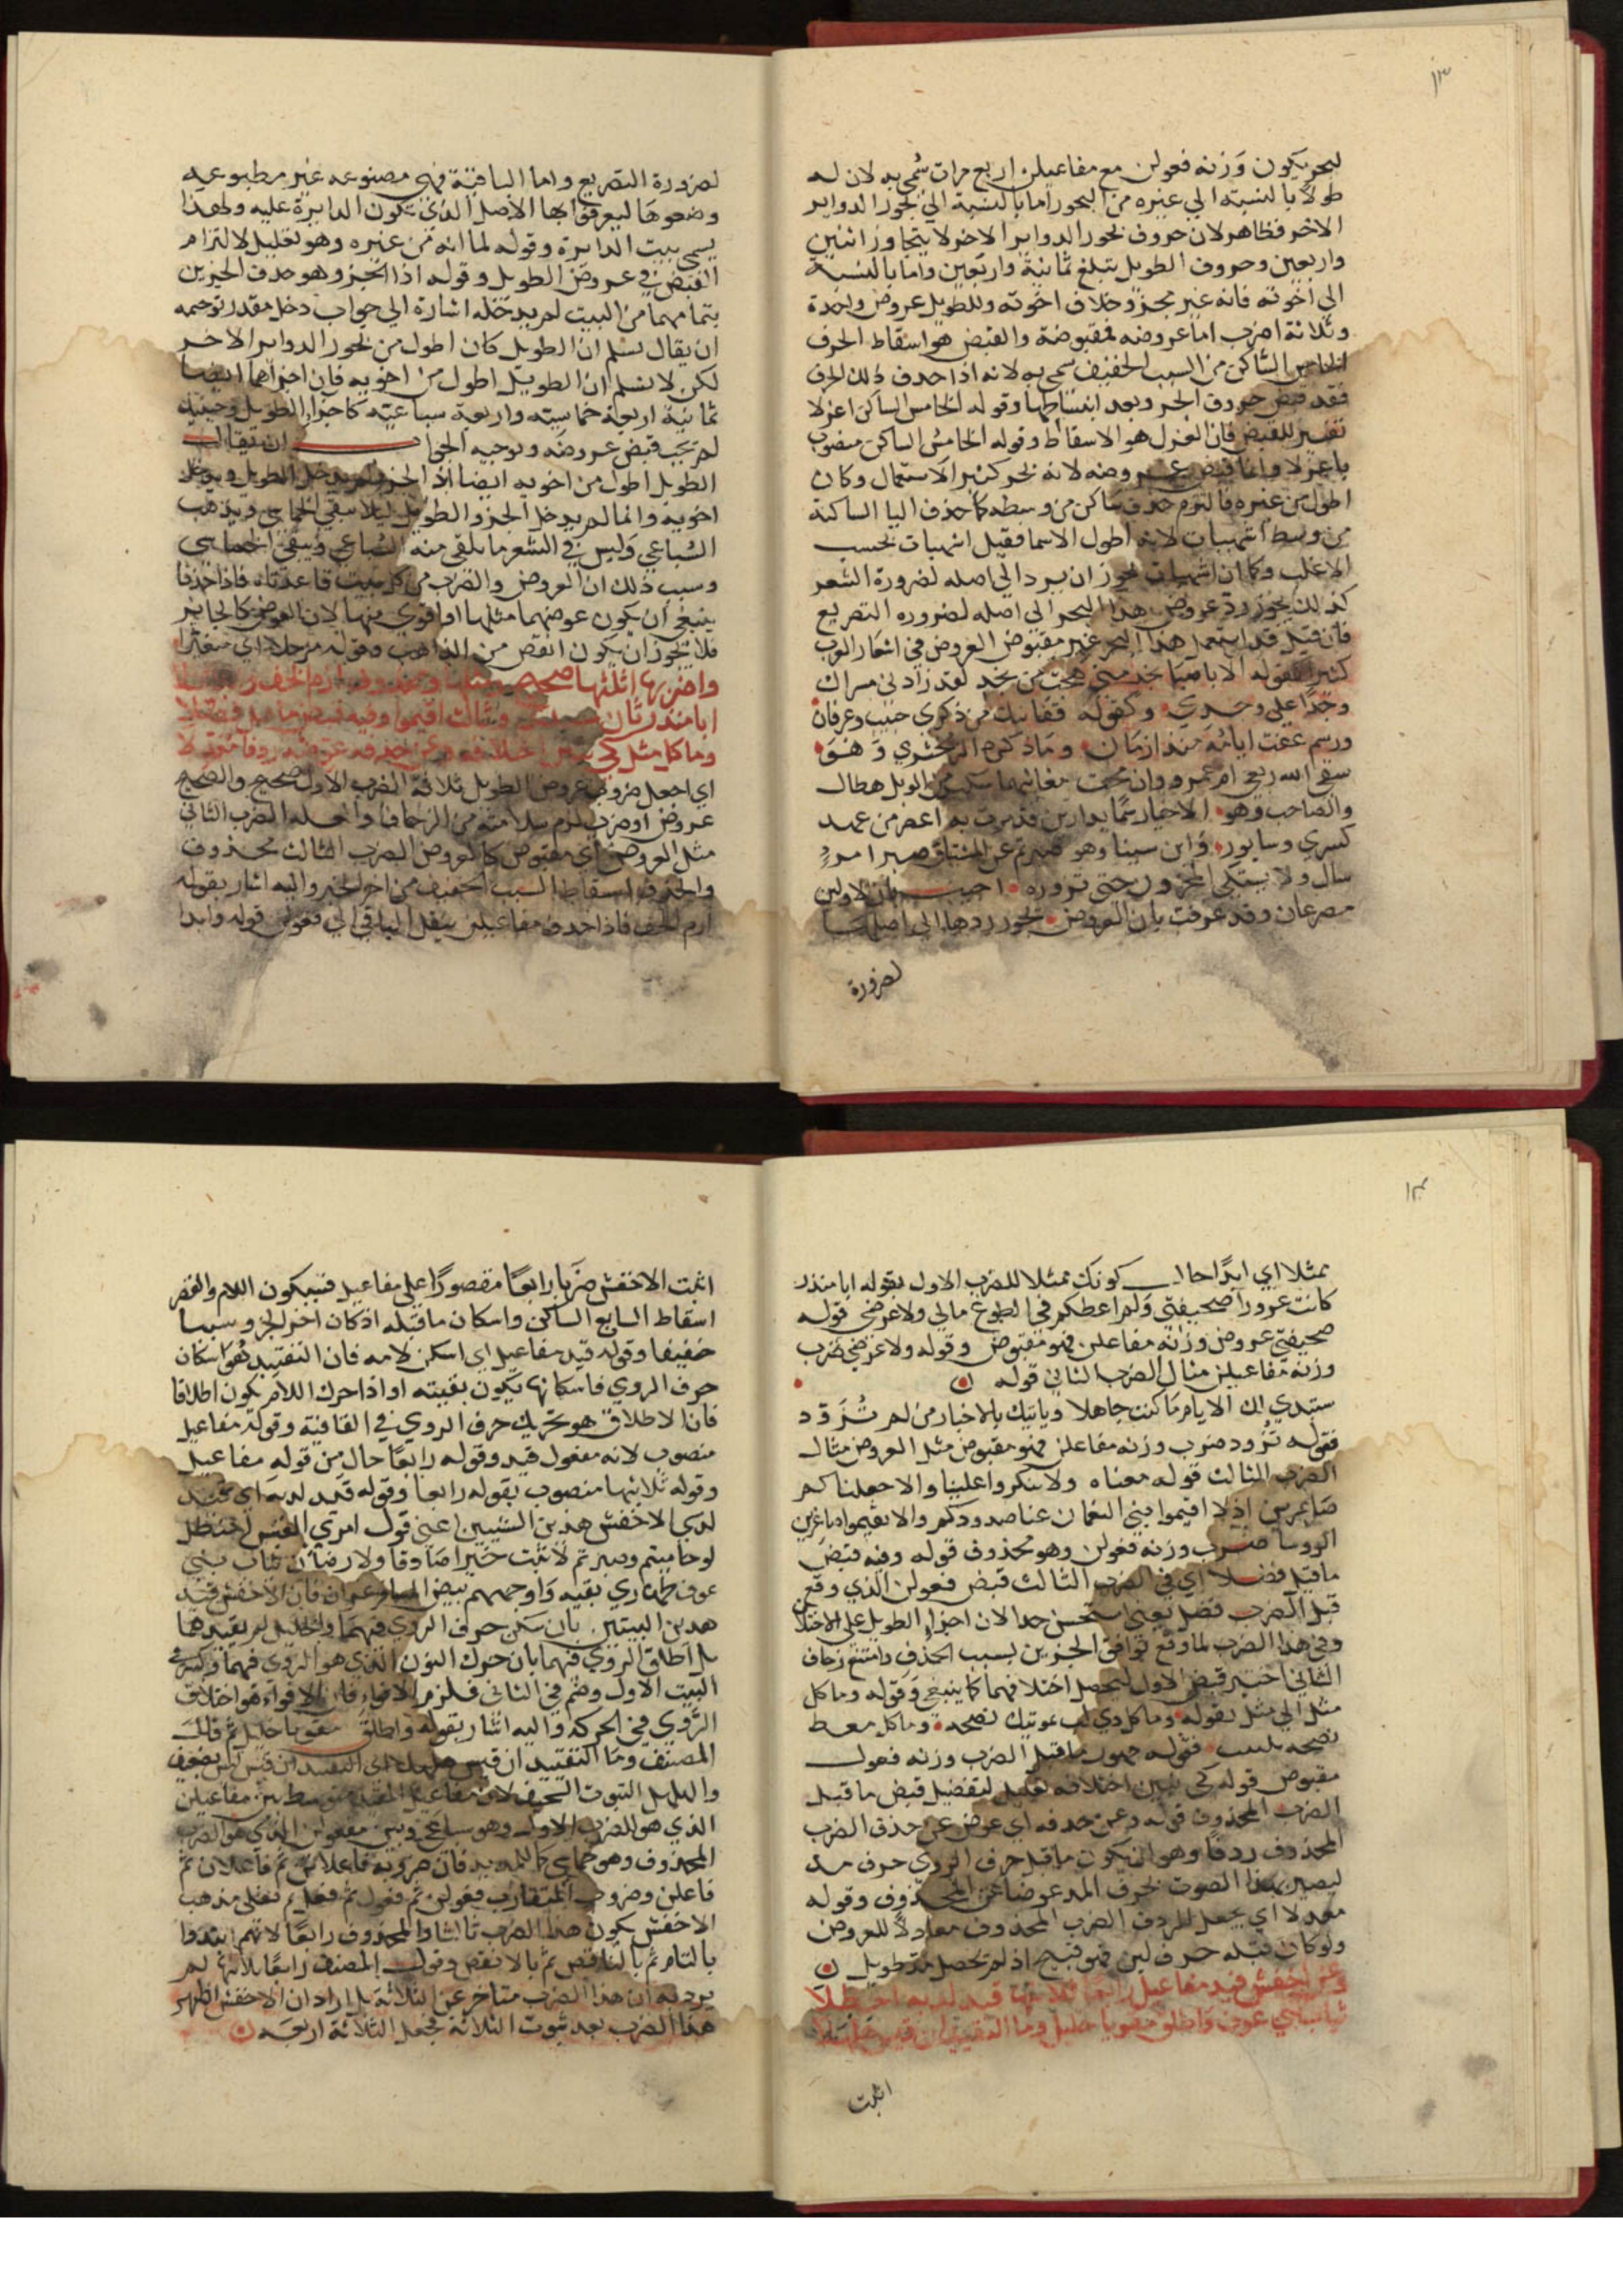 ١٣
لبحر يكون وزنه فعولن مع مفاعيلن اربع مرات سُمي به لان له
طولاً بالنسبة الي غيره من البحور اما بالنسبة الي بحور الدواير
الاخر فظاهر لان حروف بحور الدواير الاخر لا يتجاوز اثنين
واربعين وحروف الطويل يتبلغ ثمانية واربعين واما بالنسبة
الي اخوته فانه غير مجزو خلاف اخوته وللطويل عروض واحدة
وثلاثة اضرب اما عروضه فمقبوضة والقبض هو اسقاط الحرف
الخامس الساكن من السبب الخفيف سمي به لانه اذا حذف ذلك الحرف
فقد قبض حروف الجزو بعد انبساطها وقوله الخامس الساكن اعزلا
تفسير للقبض فان العزل هو الاسقاط وقوله الخامس الساكن منصوب
باعزلا وانما قبض عروضه لانه بحر كثير الاستعمال وكان
اطول من غيره فالتزم حذف ساكن من وسطه كما حذف اليا الساكنة
من وسط اشهيباب لانه اطول الاسما فقيل اشهباب بحسب
الاغلب وكما ان اشهباب يجوز ان يرد الي اصله لضرورة الشعر
كذلك يجوز رد عروض هذا البحر الي اصله لضروره التصريع
فان قيل قد استعمل هذا البحر غير مقبوض العروض في اشعار العرب
كثيرا كقوله الا يا صبا نجد متي هجت من نجد لقد زادني مسراك
وجدًا علي وجدي وكقوله قفا نبك من ذكري حبيب وعرفان
ورسم عفت اياته منذ ازمان وما ذكره الزمخشري وهو
سقي الله ربعي ام عمرو وان محت مغانيها من الوبل هطال
والصاحب وهو الاحيار سما بدارين قد مرت به اعصر من عهد
كسري وسابور وابن سينا وهو
سال ولا يشتكي المحزون حتي تزوره اجيب بان الاولين
مصرعان وقد عرفت بان العروض يجوز ردها الي اصلها
لضرورة
لضرورة التصريع واما الباقية فهي مصنوعه غير مطبوعه
وضعوها ليعرفوا بها الاصل الذي يكون الدايرة عليه ولهذا
يسمي بيت الدايرة وقوله لما انه من غيره وهو تعليل لالتزام
القبض في عروض الطويل وقوله اذا الجزو هو حذف الجزين
بتمامهما من البيت لم يدخله اشارة الي جواب دخل مقدر توجيهه
ان يقال نسلم ان الطويل كان اطول من بحور الدواير الاخر
لكن لا نسلم ان الطويل اطول من اخويه فان اجزاهما ايضا
ثمانية اربعة خماسيته واربعة سباعيته كاجزا الطويل وحينيذ
لم يجب قبض عروضه وتوجيه الجواب ان يقال
الطويل اطول من اخويه ايضا اذ الجزو لم يدخل الطويل ويدخل
اخويه وانما لم يدخل الجزو الطويل ليلا يبقي الخماسي ويذهب
السباعي وليس في الشعر ما يلقي منه السباعي ويبقي الخماسي
وسبب ذلك ان العروض والضرب من كل بيت قاعدتاه فاذا حذفا
ينبغي ان يكون عوضهما مثلها او اقوي منها لان العوض كالجابر
فلا يجوز ان يكون انقص من الذاهب وقوله مرحلا اي متغيرا
واضربها اثلثها صحيح
ابا منذر ثان وثالث اقيموا وفيه
وما كل مثل كي عن حذفه عوضه ردفا
اي اجعل ضروب عروض الطويل ثلاثة الضرب الاول صحيح والصحيح
عروض او ضرب لزم سلامته من الزحاف الضرب الثاني
مثل العروض اي مقبوض كالعروض الضرب الثالث محذوف
والحذف اسقاط السبب الخفيف من اخر الجزو واليه اشار بقوله
ارم الخف فاذا حذف مفاعيلن ينقل الباقي الي فعولن قوله وابدا
١٤
ممثلا اي ابدًا حال كونك ممثلا للضرب الاول بقوله ابا منذر
كانت غرورًا صحيفتي ولم اعطكم في الطوع مالي ولا عرضي قوله
صحيفتي عروض وزنه مفاعلن فهو مقبوض وقوله ولا عرضي ضرب
وزنه مفاعيلن مثال الضرب الثاني قوله
ستبدي لك الايام ما كنت جاهلا وياتيك بالاخبار من لم تُزَوّد
فقوله تزود ضرب وزنه مفاعلن فهو مقبوض مثل العروض مثال
الضرب الثالث قوله معناه ولا تنكروا علينا والا جعلناكم
صاغرين اذلا اقيموا بني النعمان عنا صدوركم والا تقيموا صاغرين
الرووسا ضرب وزنه فعولن وهو محذوف قوله وفيه قبض
ما قبل فضلا اي في الضرب الثالث قبض فعولن الذي وقع
قبل الضرب فضل يعني استحسن جدا لان اجزا الطويل علي الاختلاف
وفي هذا الضرب لما وقع توافق الجزين بسبب الحذف وامتنع زحاف
الثاني اختير قبض الاول ليحصل اختلافهما كما ينبغي وقوله وما كل
مثل الي مثل بقوله وما كل ذي لب بموتيك نصحه وما كل معط
نصحه بلبيب فقوله ما قبل الضرب وزنه فعول
مقبوض قوله كي يبين اختلافه تعليل لتفضيل قبض ما قبل
الضرب المحذوف قوله وعن حذفه اي عوض عن حذف الضرب
المحذوف ردفا وهو ان يكون ما قبل حرف الروي حرف مد
ليصير هذا الصوت بحرف المد عوضا عن المحذوف وقوله
معدلا اي يجعل الردف الضرب المحذوف معادلًا للعروض
ولو كان قبله حرف لين فهو قبيح اذ لم يحصل مد طويل
وعن اخفش قيد مفاعيل رابعا ثلاثيها قيد لديه احنظلا
ثياب بني عوف واطلق مقويا خليل وما التقييد ان قيس
اثبت
اثبت الاخفش ضربا رابعًا مقصورًا علي مفاعيل فسيكون اللام والقصر
اسقاط السابع الساكن واسكان ما قبله اذ كان اخر الجزو سببا
خفيفا وقوله قيد مفاعيل اي اسكن لامه فان التقييد هو اسكان
حرف الروي فاسكانها يكون تقييده او اذا حرك اللام يكون اطلاقا
فان الاطلاق هو تحريك حرف الروي في القافية وقوله مفاعيل
منصوب لانه مفعول قيد وقوله رابعًا حال من قوله مفاعيل
وقوله ثلاثيها منصوب بقوله رابعا وقوله قيد لديه اي قيد
لدي الاخفش هذين الشيين اعني قول امري القيس احنظل
لو حاميتم وصبرتم لاثنيت خيرا صادقا ولارضان ثياب بني
عوف طهاري نقيه واوجههم بيض غران فان الاخفش قيد
هذين البيتين بان سكن حرف الروي فيهما والخليل لم يقيدهما
بل اطلق الروي فيهما بان حرك النون الذي هو الروي فيهما وكسر في
البيت الاول وضم في الثاني فلزم الاقواء فان الاقواء هو اختلاف
الروي في الحركة واليه اشار بقوله واطلق مقويا خليل ثم قال
المصنف وما التقييد ان قيس اي التقييد ان قيس لم يضعف
والبلبل النبوت النحيف لان مفاعيل المقيد متوسط بين مفاعيلن
الذي هو للضرب الاول وهو سباعي وبين فعولن الذي هو الضرب
المحذوف وهو خماسي كالمديد فان ضروبه فاعلاتن ثم فاعلان ثم
فاعلن وضروب المتقارب فعولن ثم فعول ثم فعل ثم فعلي مذهب
الاخفش يكون هذا الضرب ثانيا والمحذوف رابعًا لانهم ابتدوا
بالتام ثم بالناقص ثم بالانقص وقول المصنف رابعًا لانه لم
يرد به ان هذا الضرب متاخر عن الثلاثة بل اراد ان الاخفش اظهر
هذا الضرب بعد ثبوت الثلاثة فجعل الثلاثة اربعه